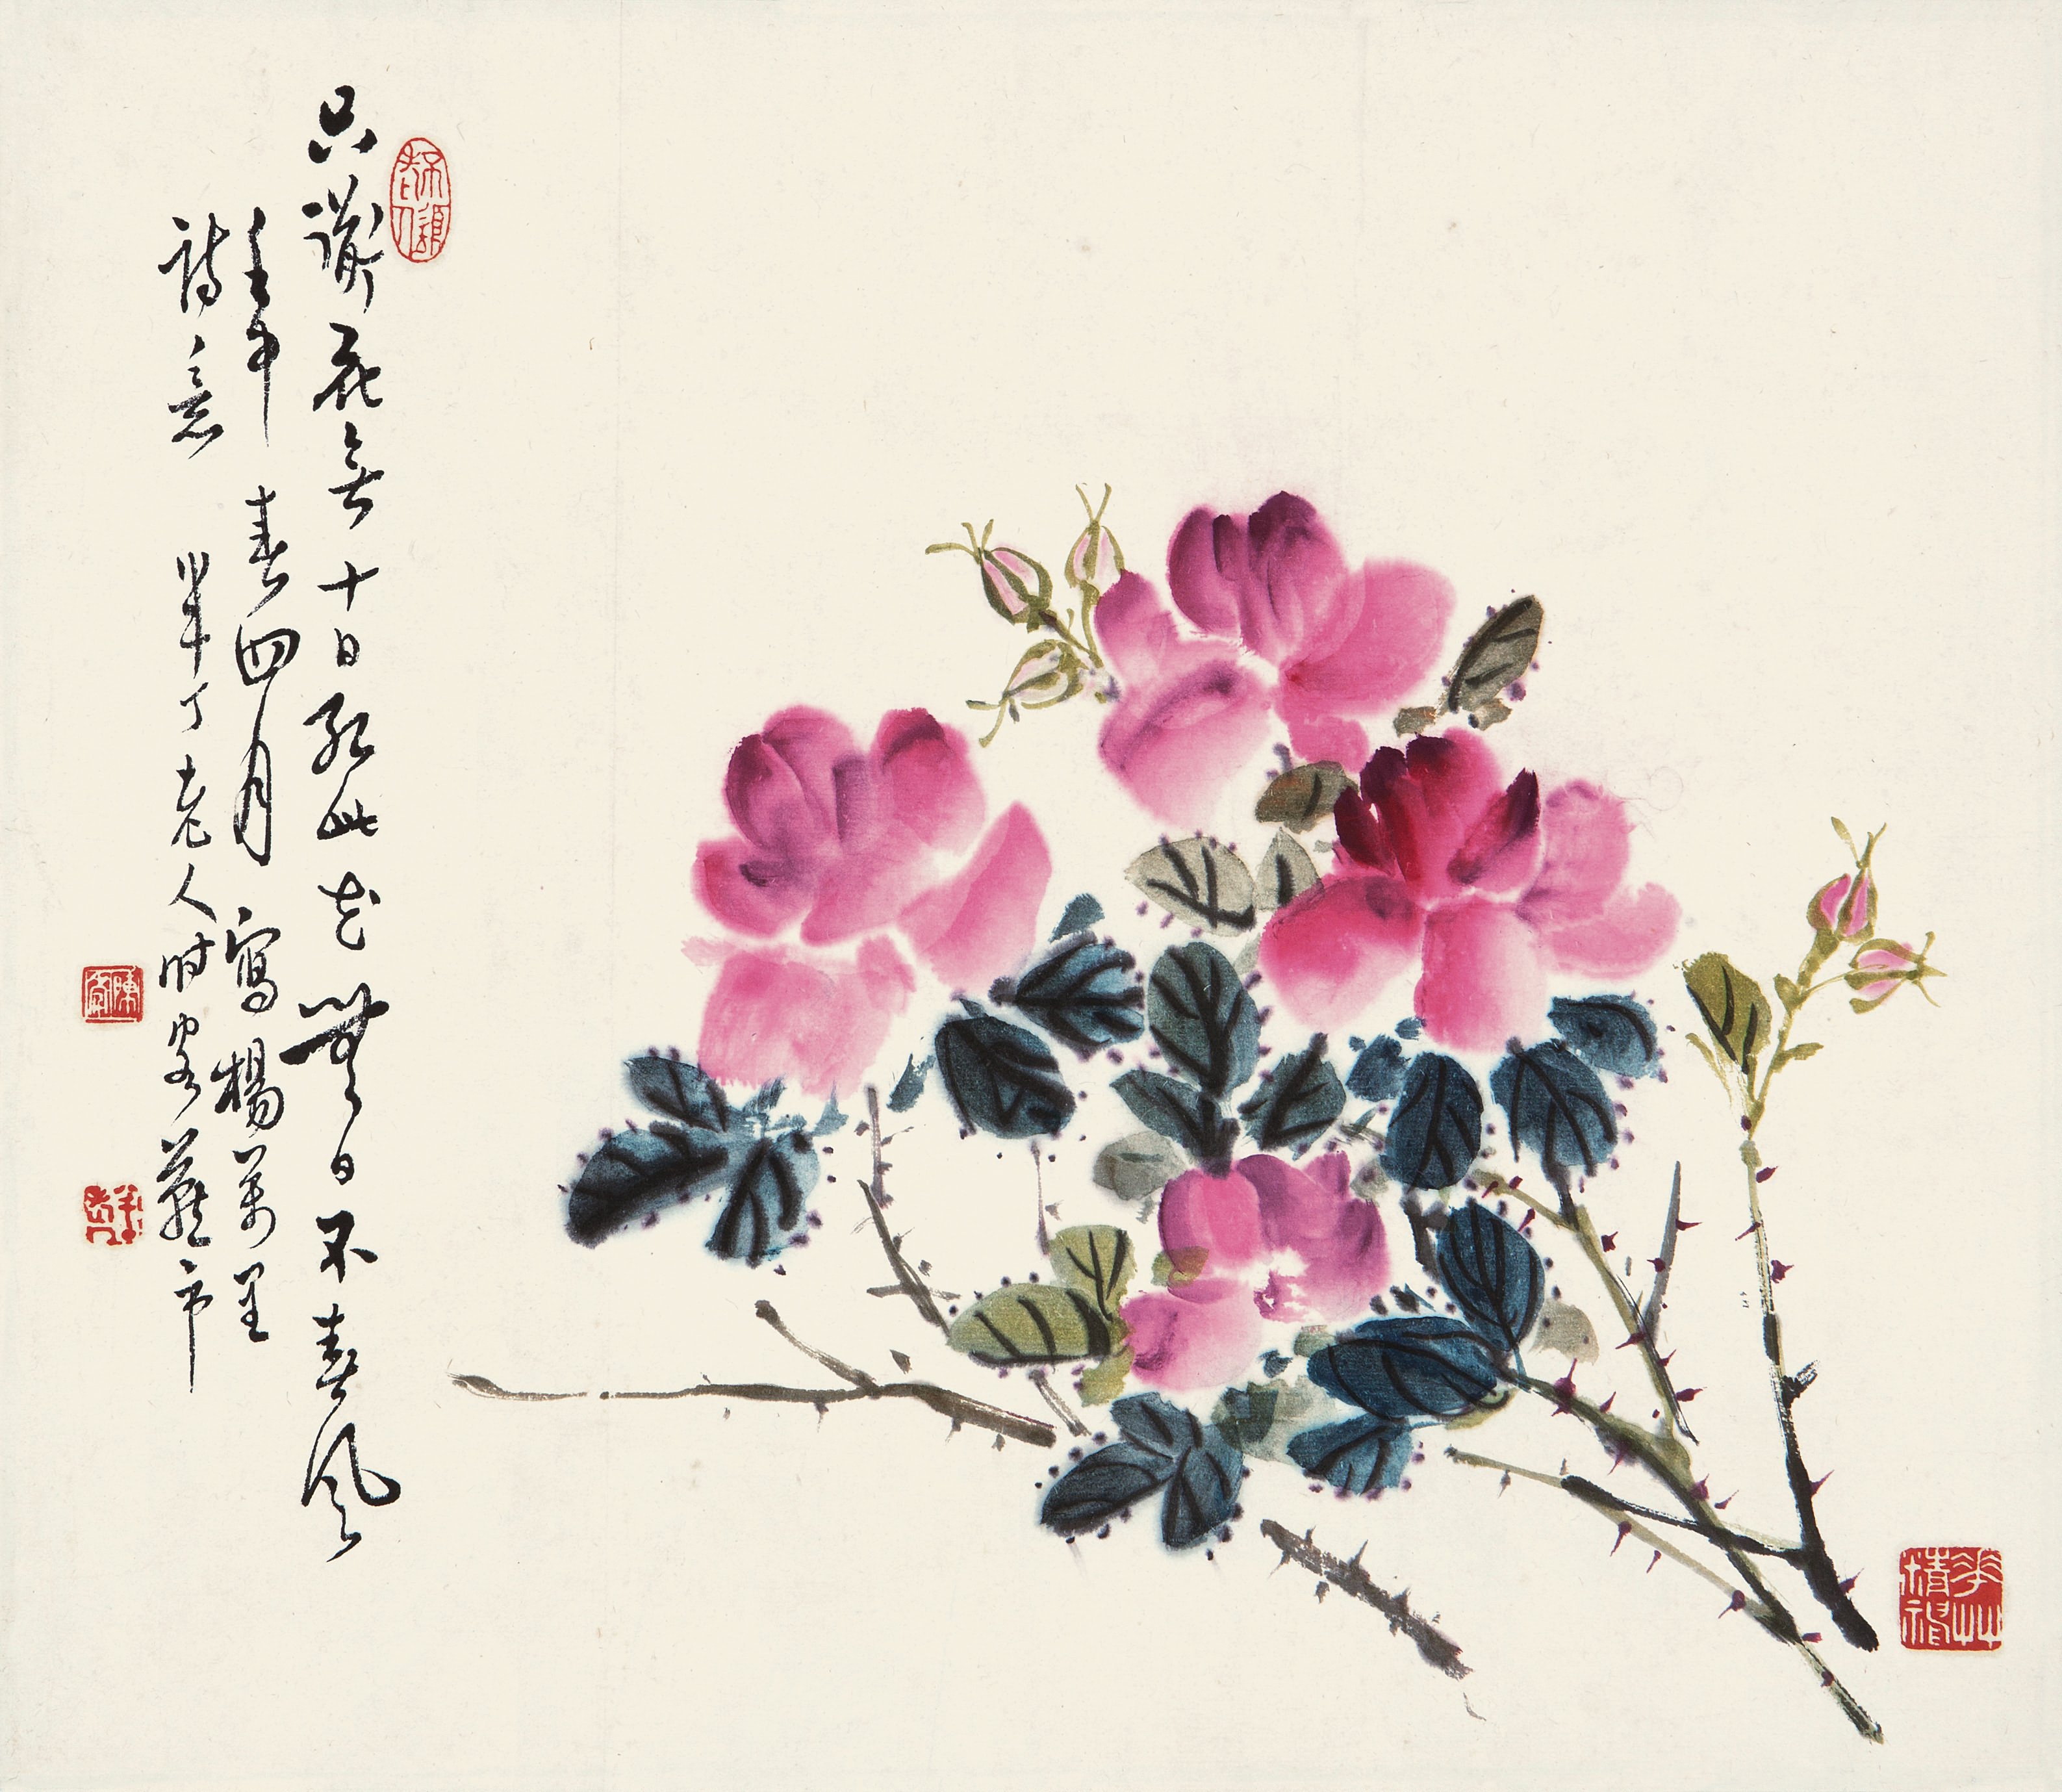 只花無十日紅此花無日不春風
壬申春四月寫楊萬里
詩意 半丁老人時客燕市
陳年